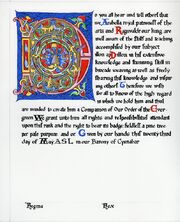 o you all hear and tell others that
we Arabella royal patronell of the
arts and Reynaldr our king are
well aware of the Skill and teaching
accomplished by our subject
and his extensive
knowledge and stunning Skill in
brocade weaving as well as freely
sharing that knowledge and inspir
ing others therefore we wish
for all to know of the high regard
in which we hold him and thus
are moved to create him a Companion of our Order of the Ever
green We grant unto him all rights and responsibilities attendant
upon this rank and the right to bear its badge fielded a pine tree
per pale purpure and or Given by our hands this twenty third
day of May A.S. L in our Barony of Openshir
Regina Rex